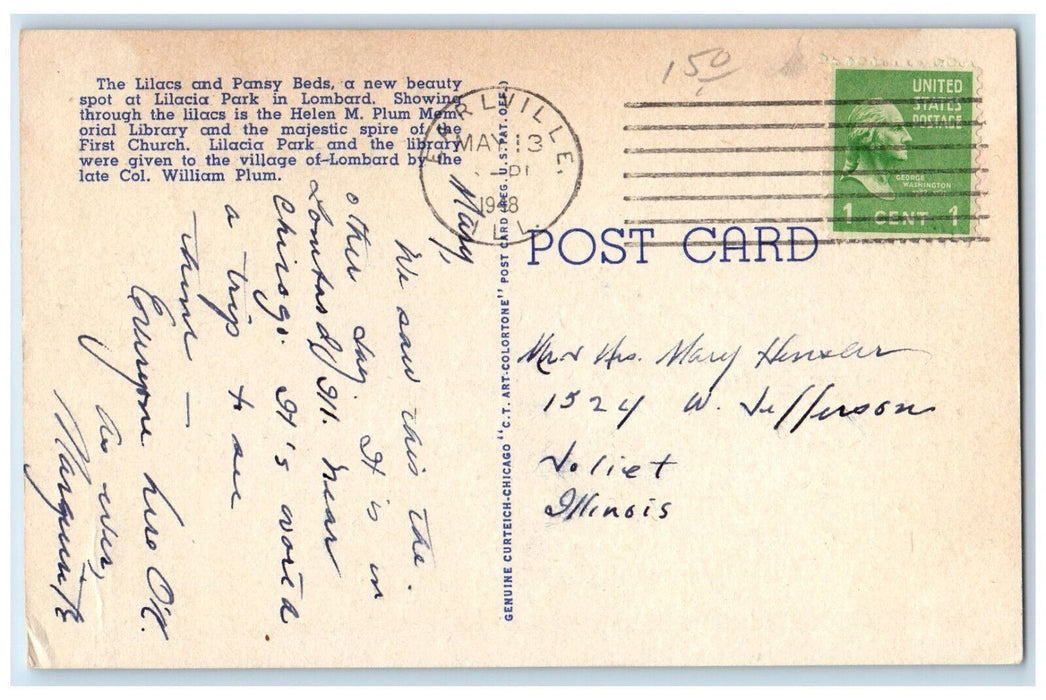 The Lilacs and Pansy Beds, a new beauty
spot at Lilacia Park in Lombard. Showing
through the lilacs is the Helen M. Plum Mem-
orial Library and the majestic spire of the
First Church. Lilacia Park and the library
were given to the village of Lombard by the
late Col. William Plum.
Mary,
We saw this the
other day. It is in
Lombard, Ill. near
Chicago. It's worth
a trip to see
them —
Everyone here O.K.
As ever,
Marguerite
GENUINE CURTEICH-CHICAGO "C.T. ART-COLORTONE" POST CARD (REG. U.S. PAT. OFF.)
EARLVILLE,
MAY 13
1948
ILL.
150
UNITED
STATES
POSTAGE
GEORGE
WASHINGTON
1 CENT 1
POST CARD
Mrs. Mary Hensler
1524 W. Jefferson
Joliet
Illinois